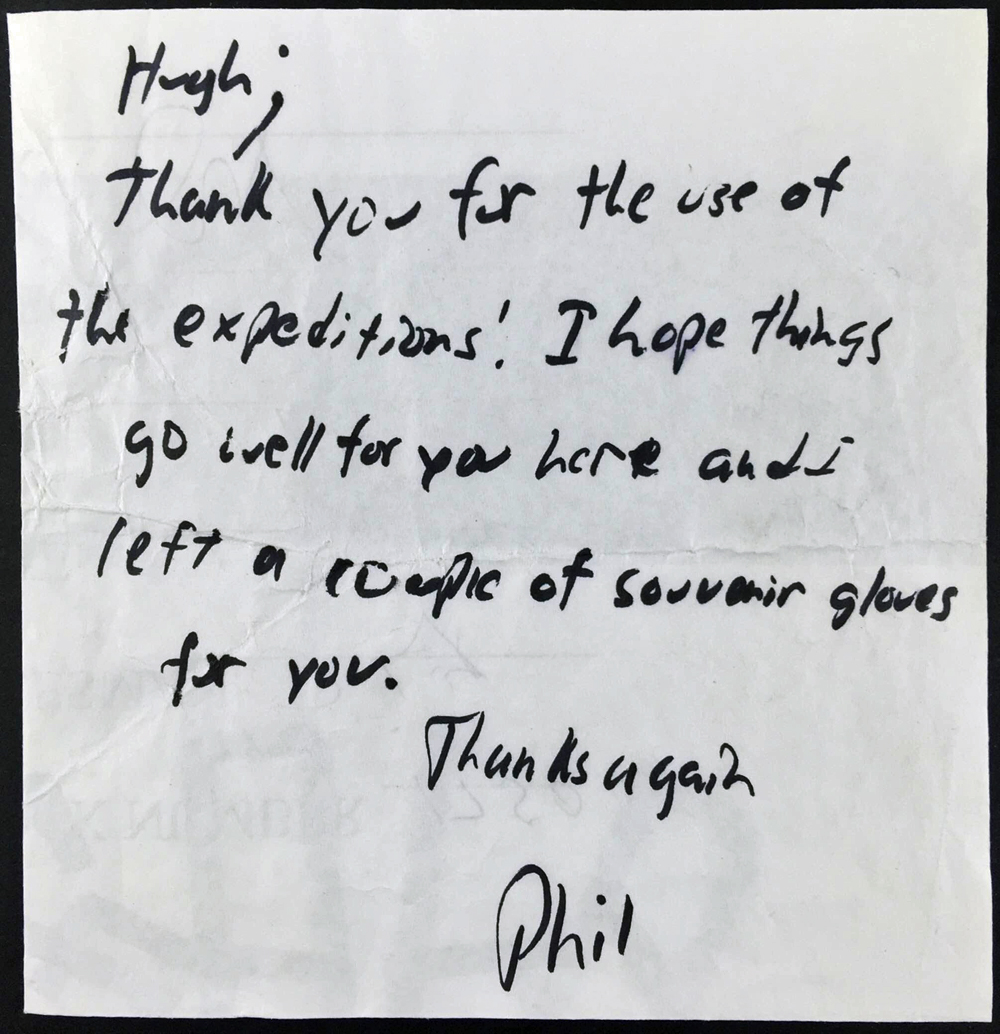 Hugh;
Thank you for the use of
the expeditions! I hope things
go well for you here and I
left a couple of souvenir gloves
for you.
Thanks again
Phil